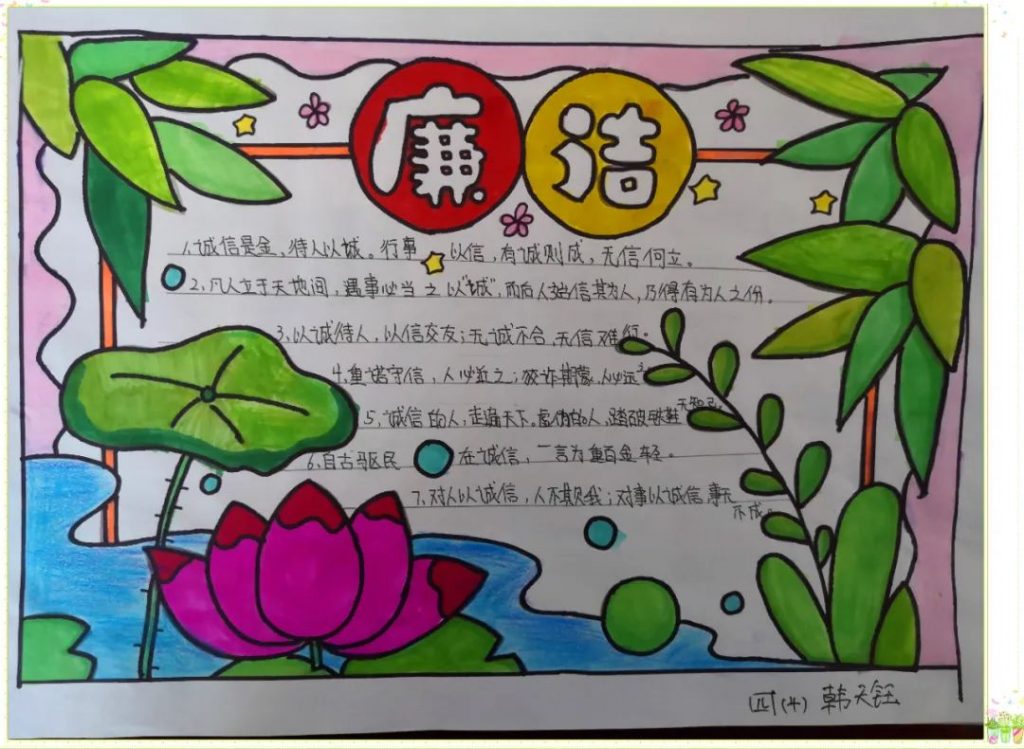 廉洁
1、诚信是金,待人以诚。行事以信,有诚则成,无信何立。
2、凡人立于天地间,遇事必当之以“诚”,而后人始信其为人,乃得有为人之份。
3、以诚待人,以信交友;无诚不合,无信难行。
4、重诺守信,人必近之;狡诈欺蒙,人必远
5、诚信的人,走遍天下。虚伪的人,踏破铁鞋无知己。
6、自古驱民在诚信,一言为重百金轻。
7、对人以诚信,人不欺我;对事以诚信,事无
不成。
四(4) 韩天钰